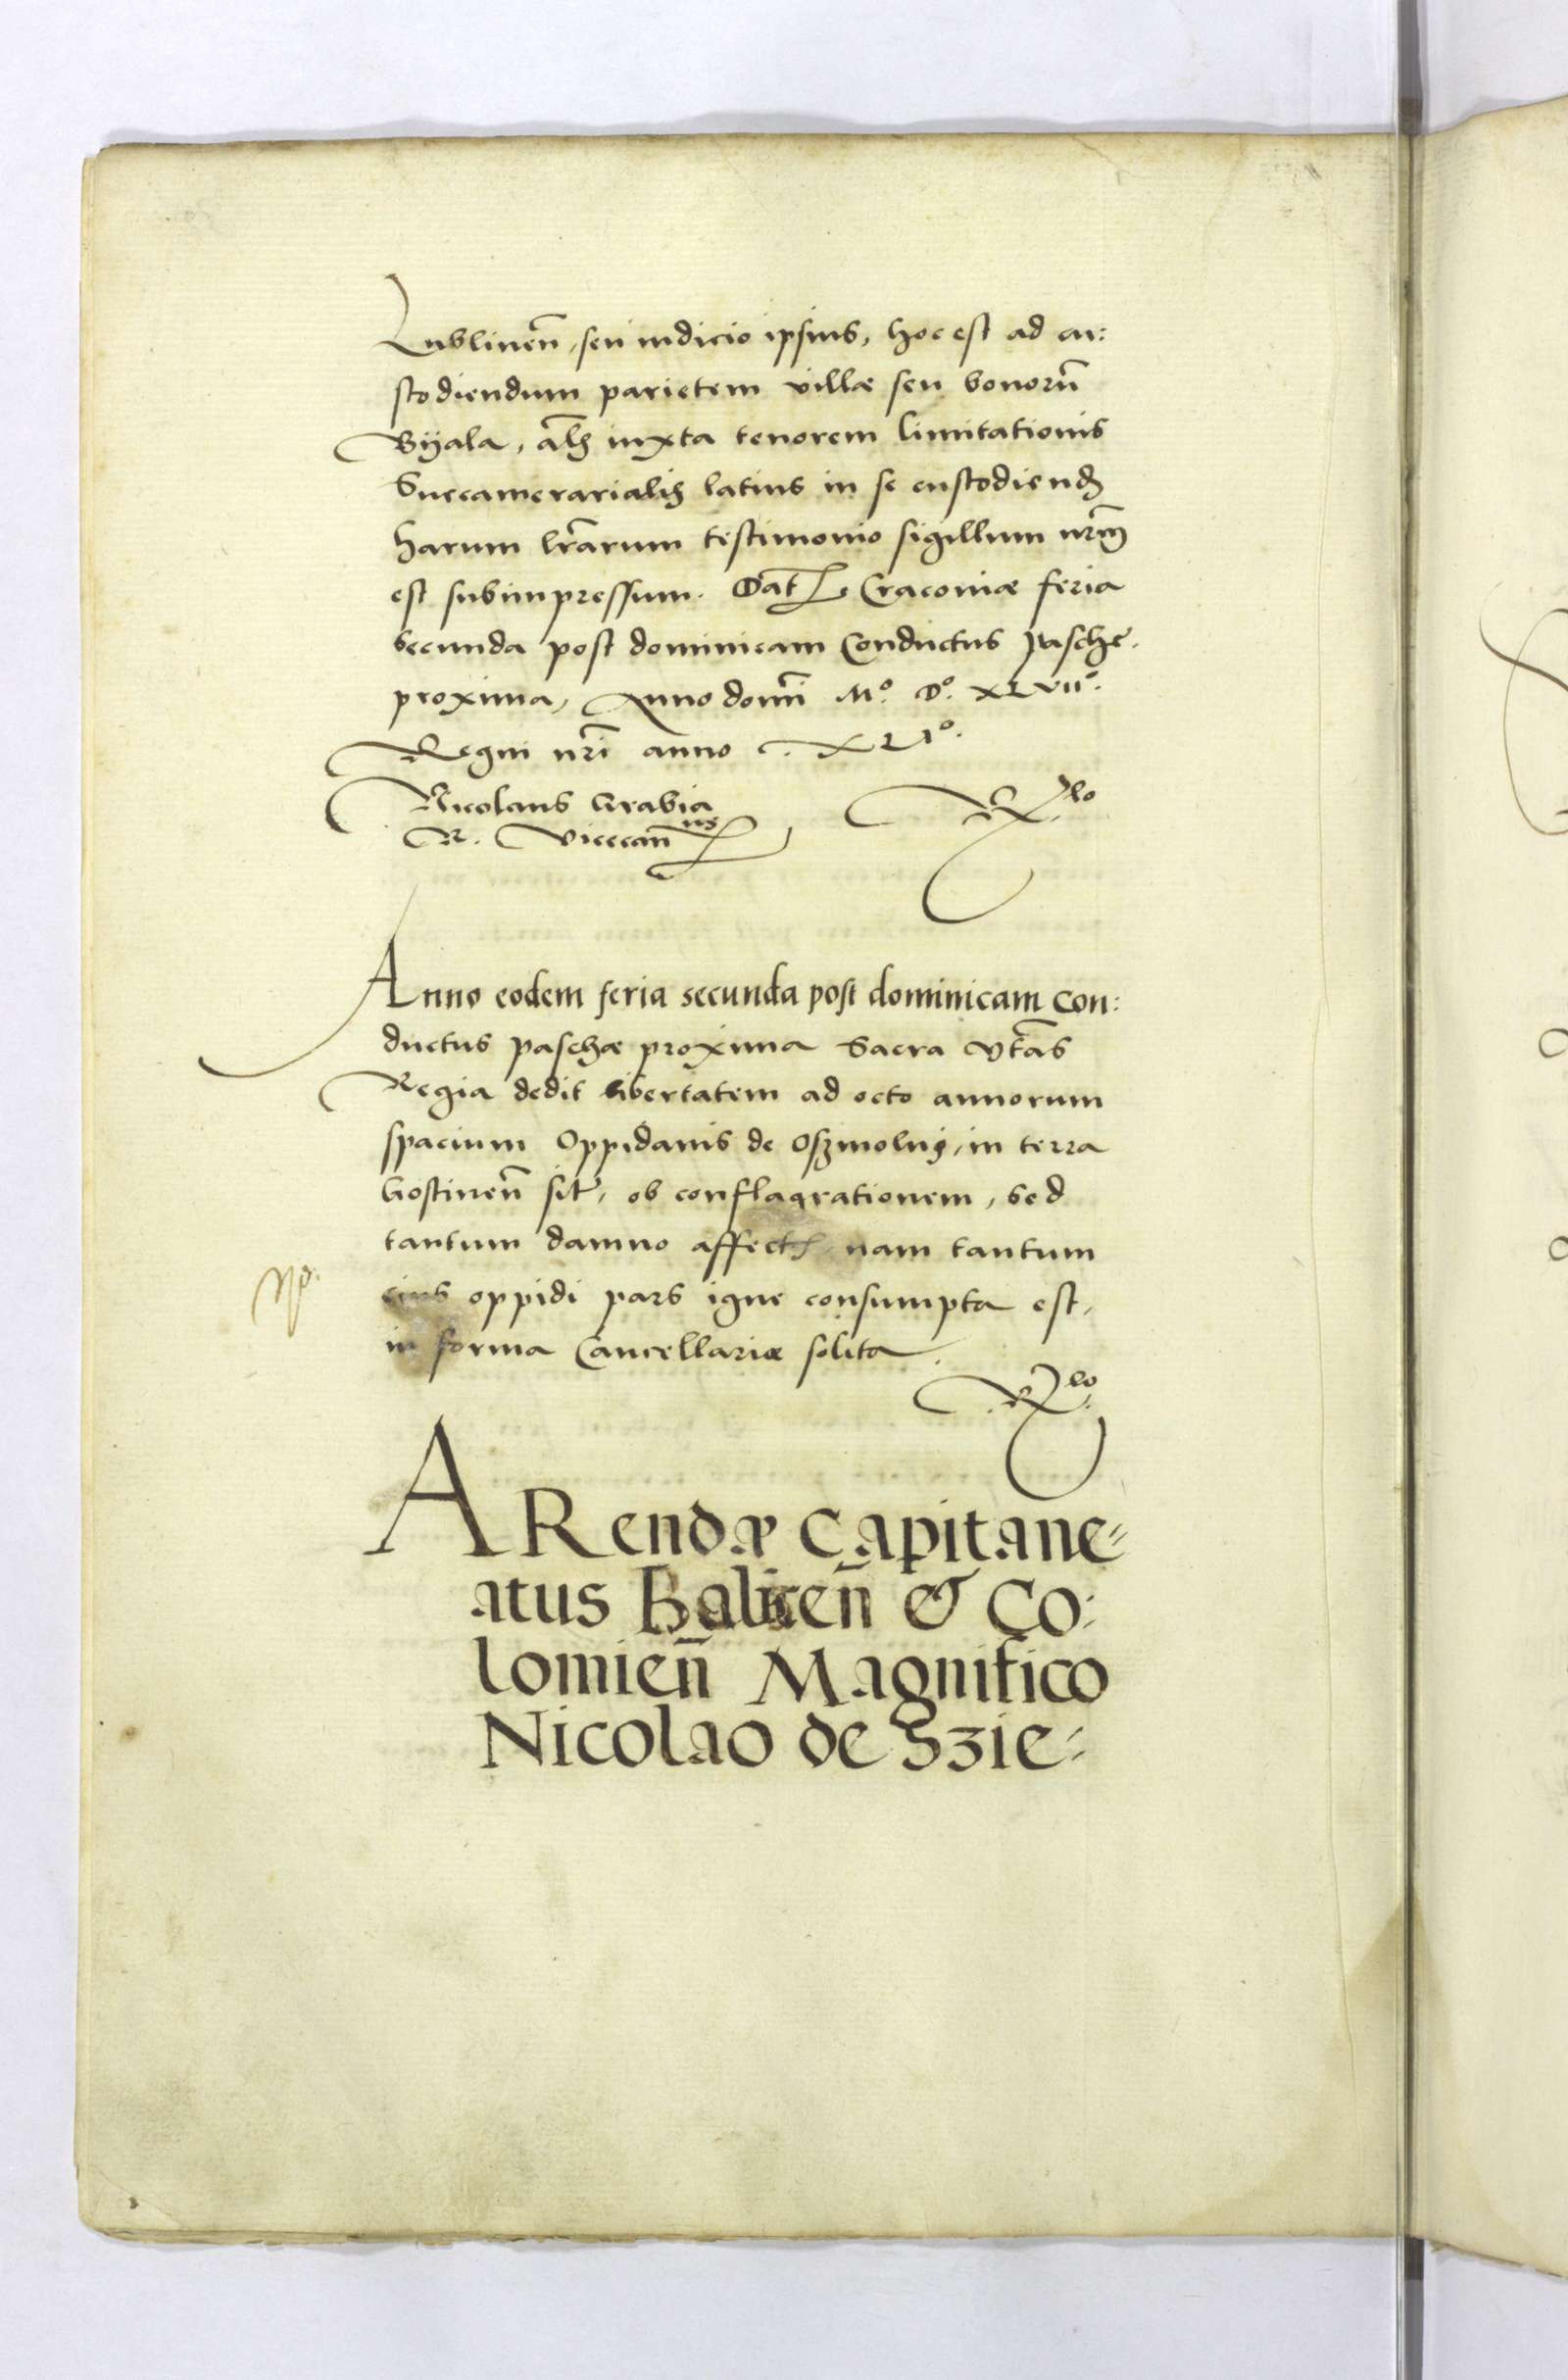 Lublinen̄, seu iudicio ipsius, hoc est ad cu:
stodiendum parietem villæ seu bonorū
Byala, al̄s iuxta tenorem limitationis
Succamerarialis latius in se custodiend
harum lr̄arum testimonio sigillum nr̄m
est subimpressum. Dat Cracoviæ feria
secunda post dominicam Conductus Paschę
proxima, Anno domī M°. D°. XLVII°.
Regni nr̄i anno XLI°.
Nicolaus Grabia
R. Vicecan̄ ius
Rlo
Anno eodem feria secunda post dominicam Con:
ductus paschæ proxima Sacra Mtas
Regia dedit libertatem ad octo annorum
spacium Oppidanis de Oszmolny, in terra
Gostinen̄ sit, ob conflagrationem, sed
tantum damno affect nam tantum
eius oppidi pars igne consumpta est,
in forma Cancellariæ solita.
Rlo
ARendæ Capitane=
atus Halicen̄ & Co:
lomien̄ Magnifico
Nicolao de Szie=